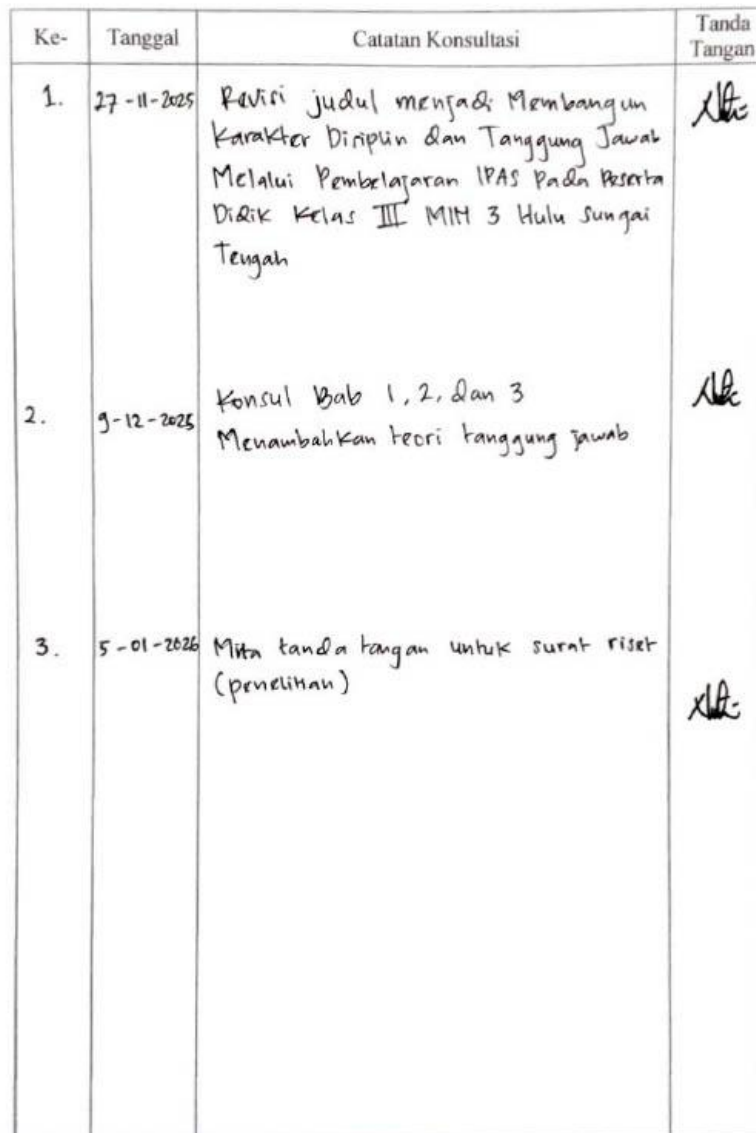 Ke- Tanggal Catatan Konsultasi Tanda Tangan
1. 27-11-2025 Revisi judul menjadi Membangun
Karakter Disiplin dan Tanggung Jawab
Melalui Pembelajaran IPAS Pada Peserta
Didik Kelas III MIM 3 Hulu Sungai
Tengah
2. 9-12-2025 Konsul Bab 1, 2, dan 3
Menambahkan teori tanggung jawab
3. 5-01-2026 Minta tanda tangan untuk surat riset
(penelitian)